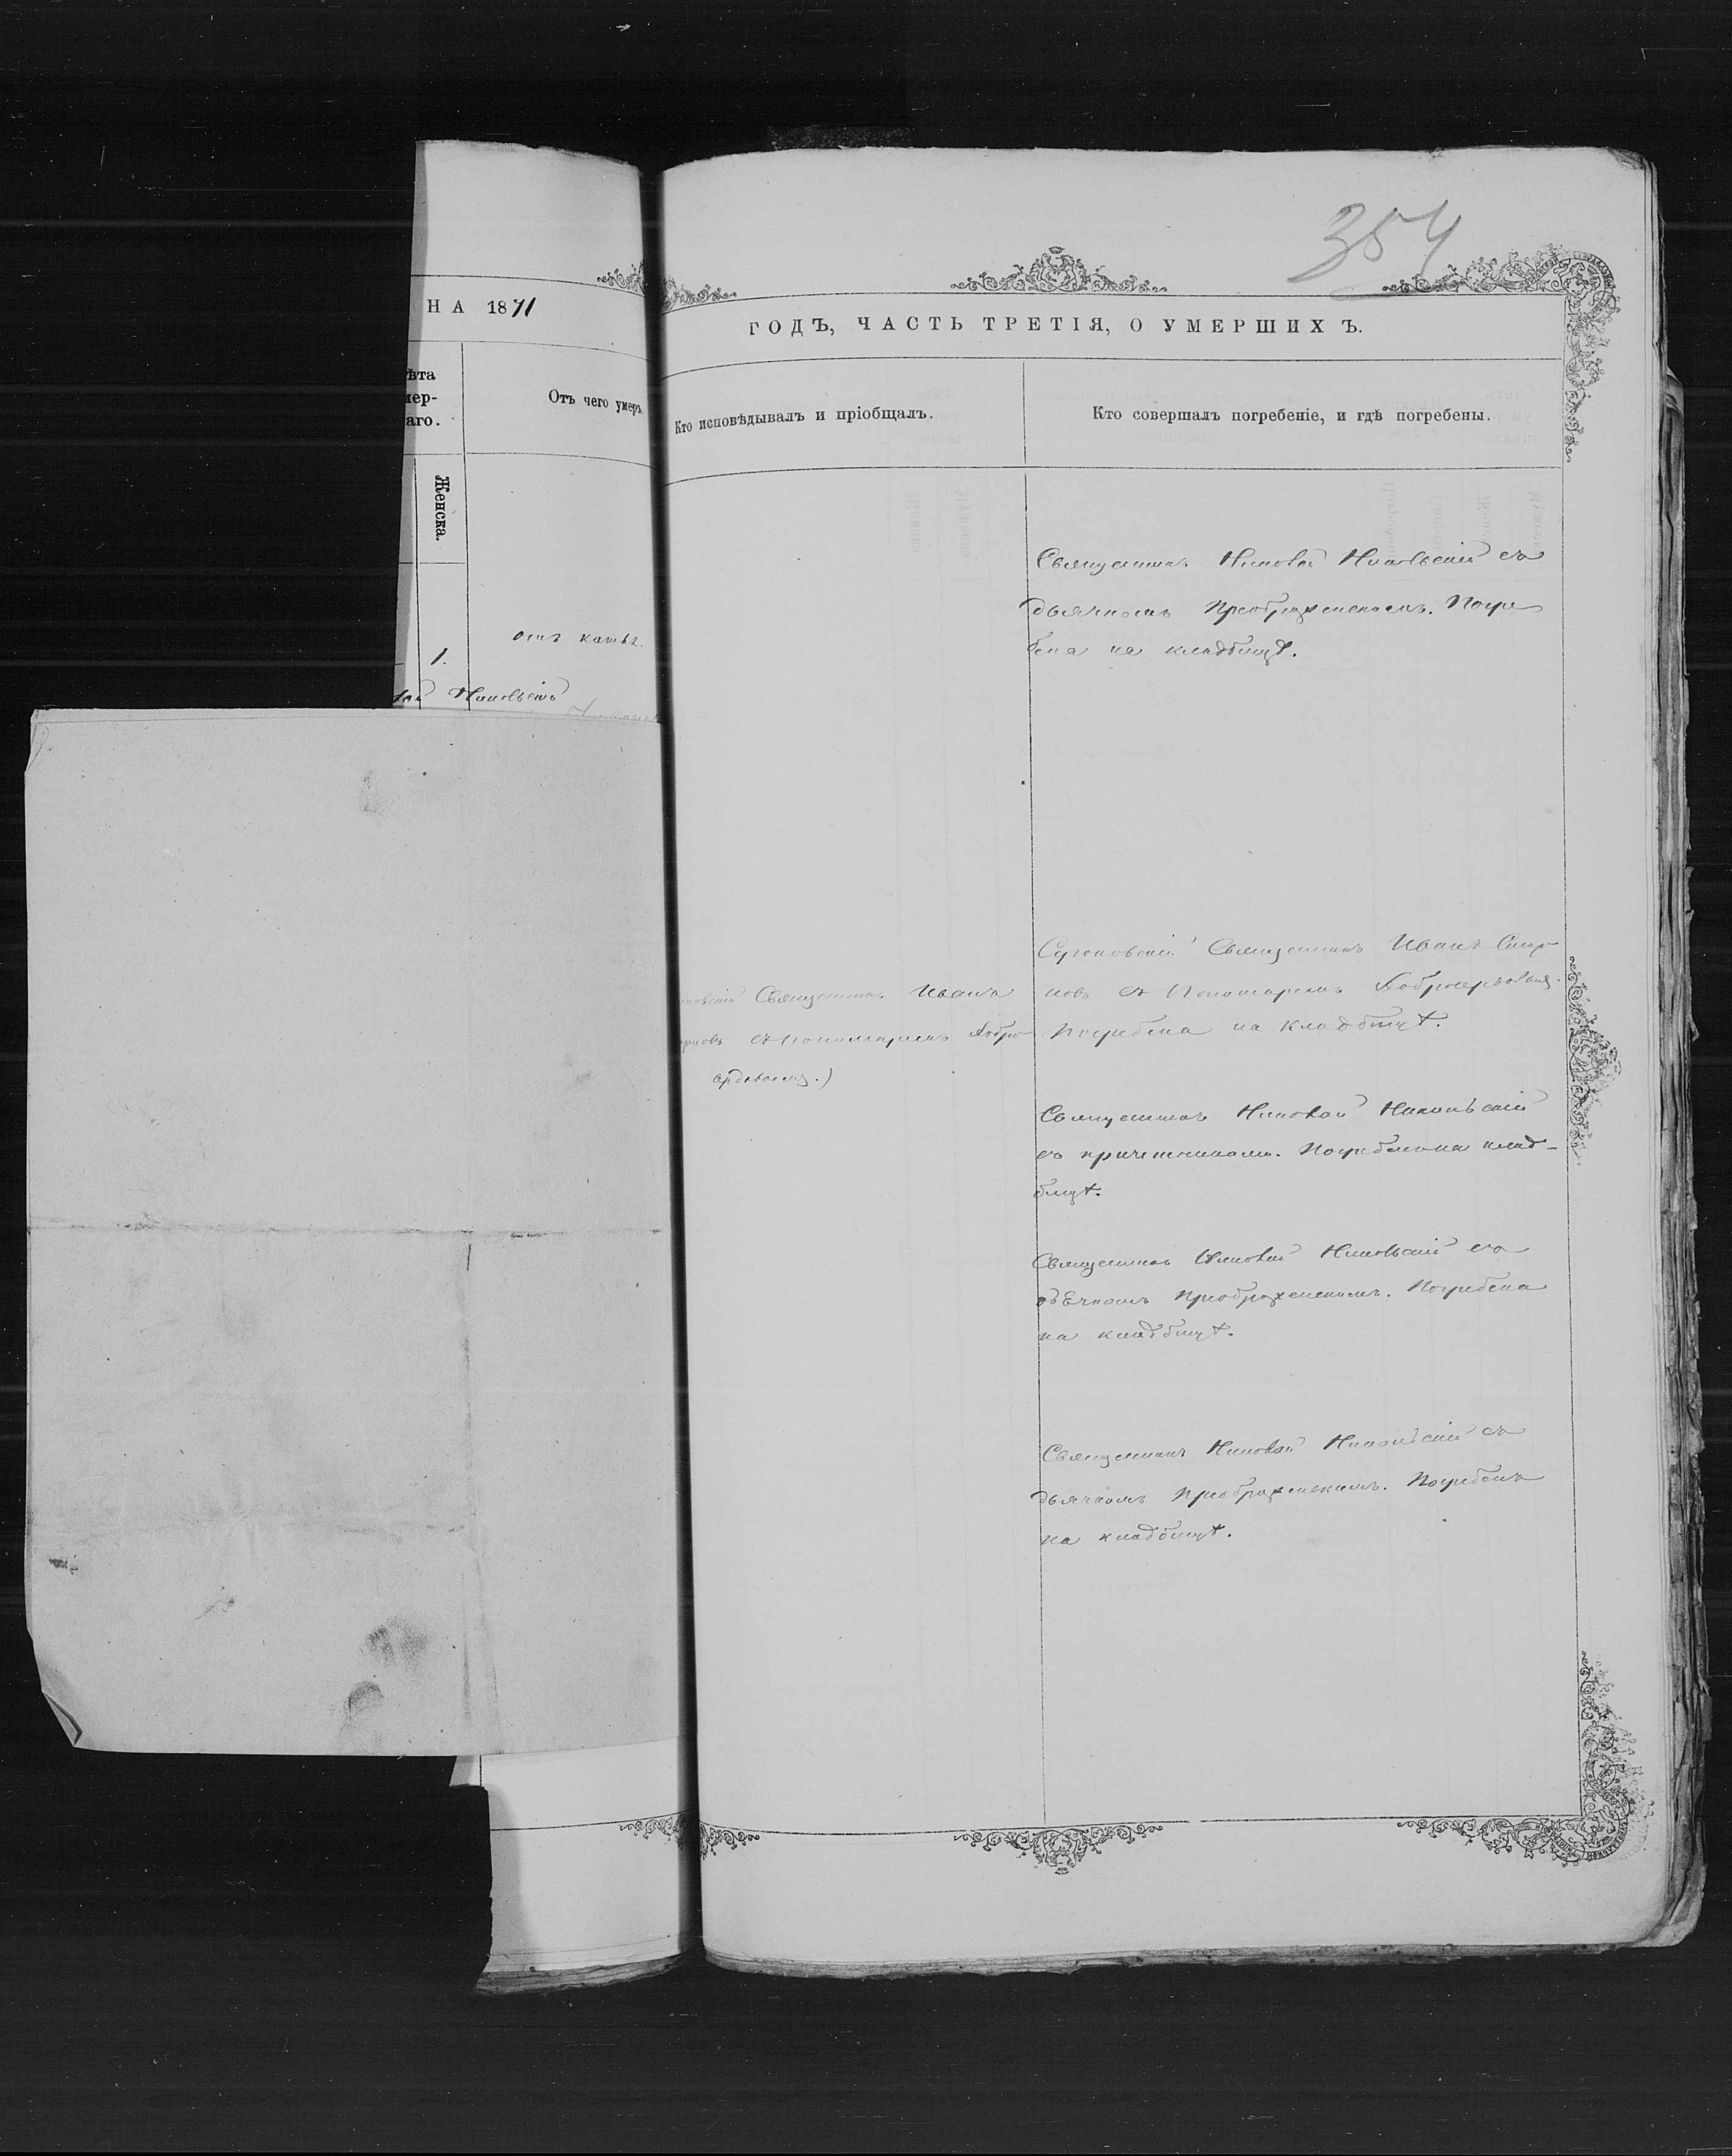 354
НА 1871
ГОДЪ, ЧАСТЬ ТРЕТІЯ, О УМЕРШИХЪ.
ѣта
мер-
аго.
Женска.
Отъ чего умеръ.
Кто исповѣдывалъ и пріобщалъ.
Кто совершалъ погребеніе, и гдѣ погребены.
1.
отъ кашля.
Священникъ Николай Никольскій съ
дьячкомъ Преображенскимъ. Погре
бена на кладбищѣ.
Священникъ Иванъ
съ Пономаремъ Добро
сердовымъ.)
Священникъ Иванъ Смир
новъ съ Пономаремъ Добросердовымъ.
Погребена на кладбищѣ.
Священникъ Николай Никольскій
съ причетниками. Погребена на клад-
бищѣ.
Священникъ Николай Никольскій съ
дьячкомъ Преображенскимъ. Погребена
на кладбищѣ.
Священникъ Николай Никольскій съ
дьячкомъ Преображенскимъ. Погребенъ
на кладбищѣ.